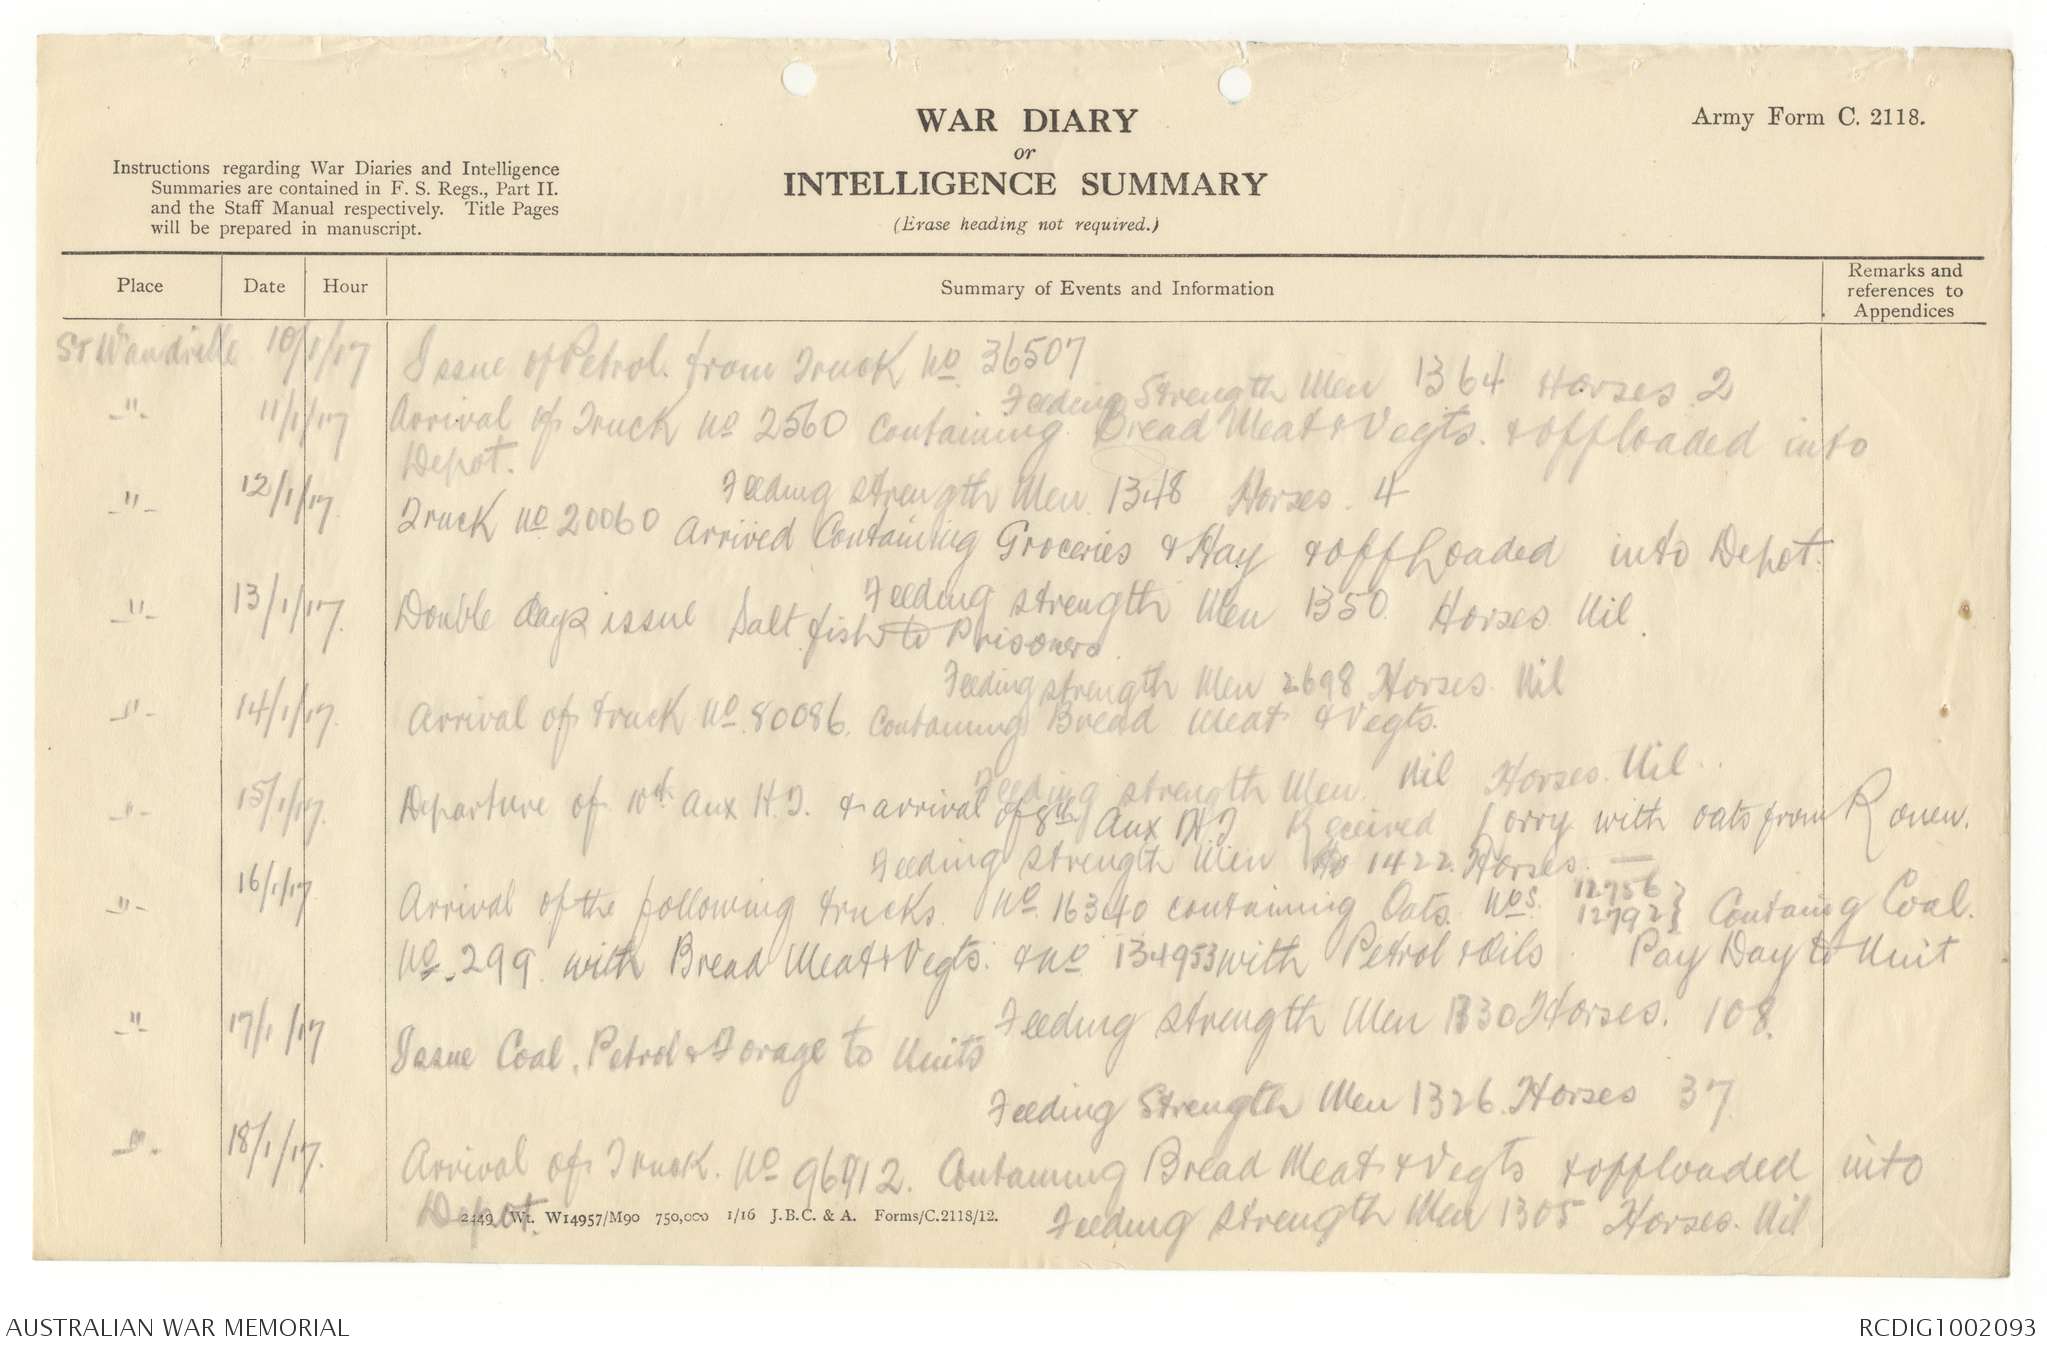 WAR DIARY
or
INTELLIGENCE SUMMARY
(Erase heading not required.)
Army Form C. 2118.
Instructions regarding War Diaries and Intelligence
Summaries are contained in F. S. Regs., Part II.
and the Staff Manual respectively. Title Pages
will be prepared in manuscript.
Place Date Hour Summary of Events and Information Remarks and references to Appendices
St Wandrille 10/1/17 Issue of Petrol. from Truck No. 36507
Feeding Strength Men 1364 Horses 2
-"- 11/1/17 Arrival of Truck No 2560 containing Bread Meat & Vegts. & offloaded into
Depot.
Feeding strength Men 1348 Horses. 4
-"- 12/1/17. Truck No 20060 Arrived Containing Groceries & Hay & offloaded into Depot.
Feeding strength Men 1350. Horses Nil.
-"- 13/1/17. Double days issue Salt fish to Prisoners.
Feeding strength Men 2698 Horses. Nil
-"- 14/1/17. Arrival of truck No. 80086. Containing Bread Meat & Vegts.
Feeding strength Men. Nil Horses. Nil..
-"- 15/1/17. Departure of 10th Aux H.T. & arrival of 8th Aux H.T. Received Lorry with oats from Rouen.
Feeding strength Men 1422. Horses. —
-"- 16/1/17. Arrival of the following trucks. No. 16340 containing Oats. Nos. 12756 12792} Containg Coal.
No. 299. with Bread Meat & Vegts. & No 134953 with Petrol & Oils. Pay Day to Unit
Feeding strength Men 1330 Horses. 108.
-"- 17/1/17 Issue Coal, Petrol & Forage to Units
Feeding Strength Men 1326. Horses 37.
-"-. 18/1/17. Arrival of Truck. No 96912. Containing Bread Meat & Vegts & offloaded into
Depot.
Feeding strength Men 1305 Horses. Nil
2449 Wt. W14957/M90 750,000 1/16 J.B.C. & A. Forms/C.2118/12.
AUSTRALIAN WAR MEMORIAL
RCDIG1002093